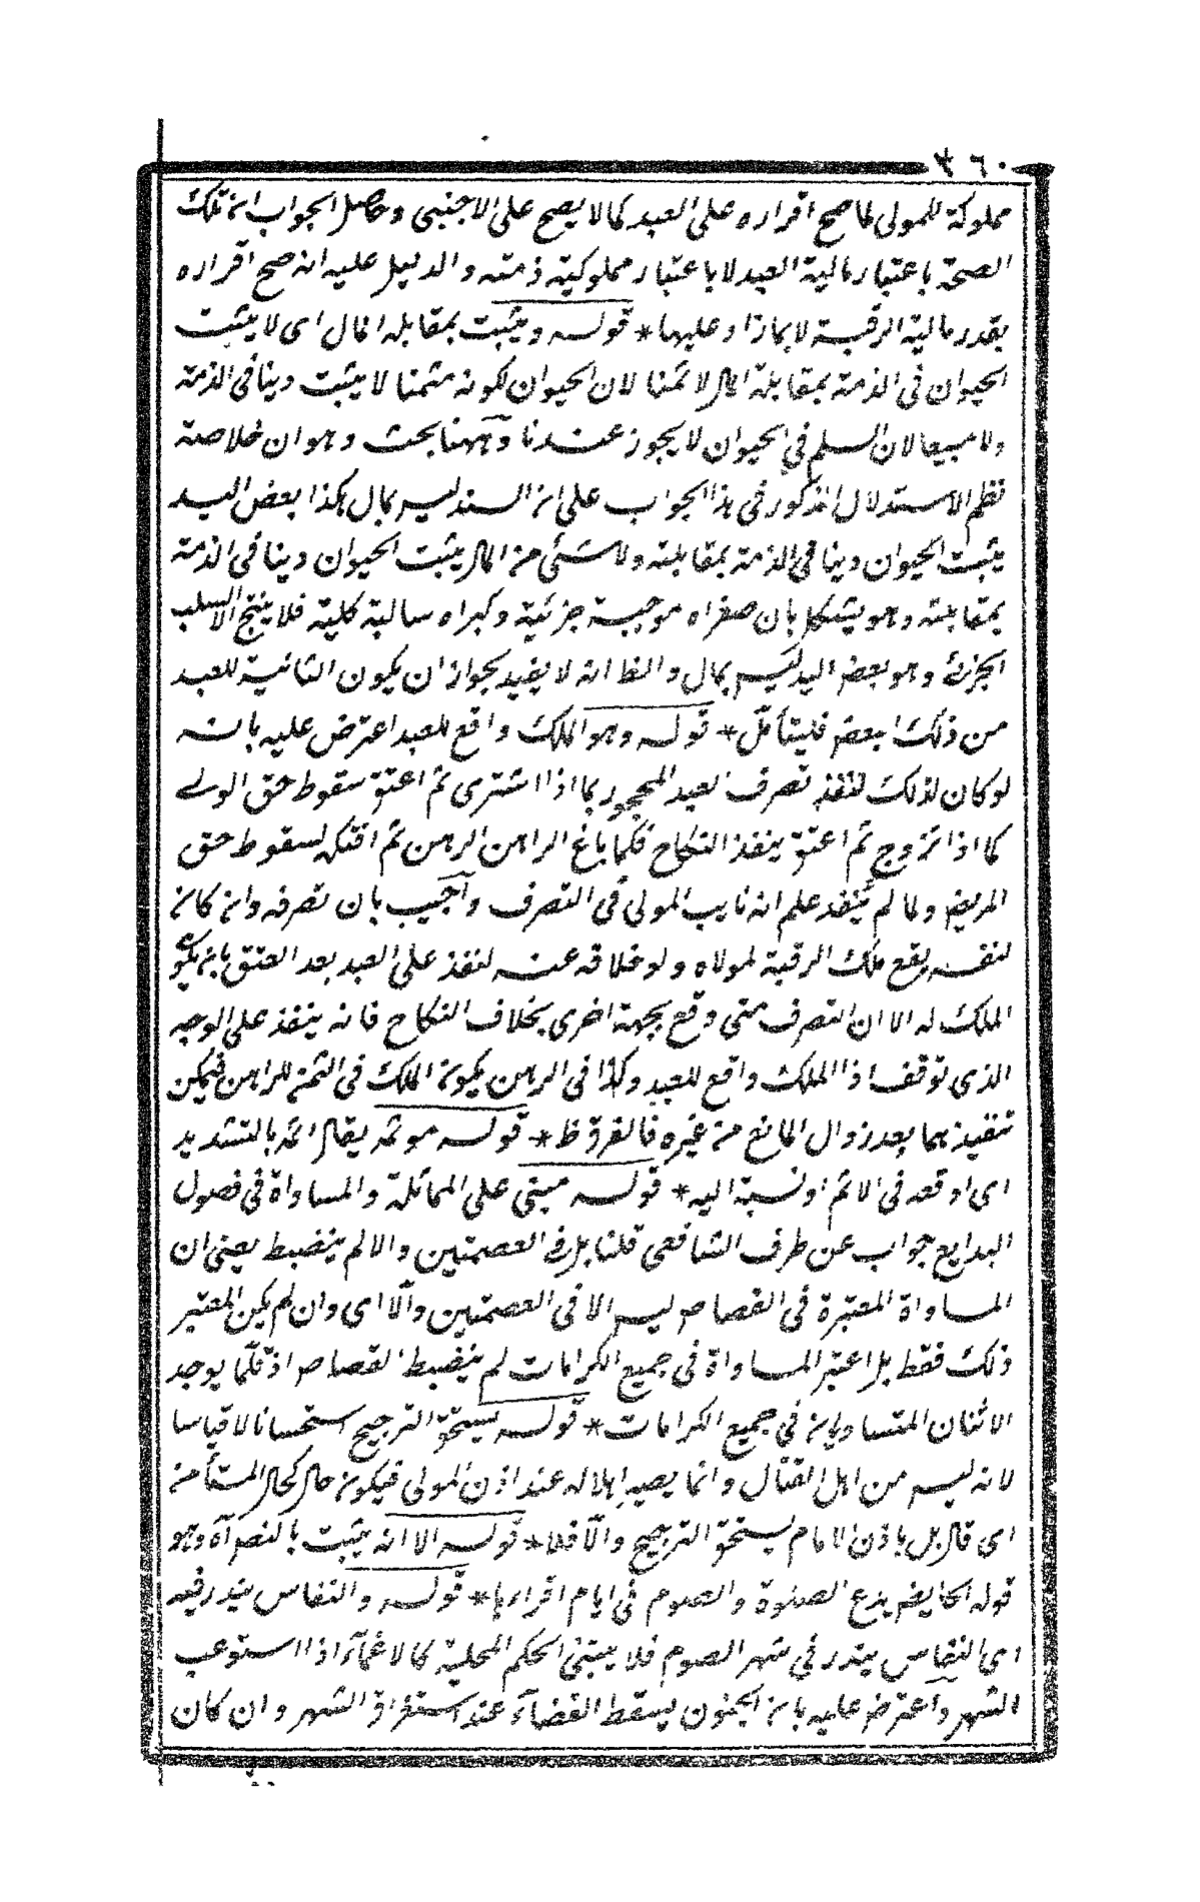 ٣٦٠
مملوكة للمولى لما صح اقراره على العبد كما لا يصح على الاجنبى وحاصل الجواب ان تلك
الصحة باعتبار مالية العبد لا باعتبار مملوكية ذمته والدليل عليه انه صح اقراره
بقدر مالية الرقبة لا بما زاد عليها * قوله ويثبت بمقابله المال اى لا يثبت
الحيوان فى الذمة بمقابلة المال لا ثمنا لان الحيوان لكونه مثمنا لا يثبت دينا فى الذمة
ولا مبيعا لان السلم فى الحيوان لا يجوز عندنا وههنا بحث وهو ان خلاصة
نظم الاستدلال المذكور فى هذا الجواب على ان السند ليس بمال هكذا بعض اليد
يثبت الحيوان دينا فى الذمة بمقابلته ولا شئ من المال يثبت الحيوان دينا فى الذمة
بمقابلته وهو يشكل بان صغراه موجبة جزئية وكبراه سالبة كلية فلا ينتج الا السلب
الجزئ وهو بعض اليد ليس بمال والظ انه لا يفيد لجواز ان يكون الثانية للعبد
من ذلك البعض فليتأمل * قوله وهو الملك واقع للعبد اعترض عليه بانه
لو كان لذلك لنفذ تصرف العبد المحجور بما اذا اشترى ثم اعتق سقوط حق المولى
كما اذا تزوج ثم اعتق ينفذ النكاح فكما باع الراهن الرهن ثم افتكه لسقوط حق
المريض ولما لم ينفذ علم انه نايب المولى فى التصرف واجيب بان تصرفه وان كان
لنفسه يقع ملك الرقبة لمولاه ولو خلافه عنه لنفذ على العبد بعد العتق بان يكون
الملك له الا ان التصرف متى وقع بجهة اخرى بخلاف النكاح فانه ينفذ على الوجه
الذى توقف اذ الملك واقع للعبد وكذا فى الرهن يكون الملك فى الثمن للراهن فيمكن
تنفيذهما بعد زوال المانع من غيره فالفرق ظ * قوله موثمه يقال اثمه بالتشديد
اى اوقعه فى الاثم او نسبة اليه * قوله مبنى على المماثلة والمساواة فى فصول
البدايع جواب عن طرف الشافعى قلنا بل فى العصمتين والا لم ينضبط يعنى ان
المساواة المعتبرة فى القصاص ليس الا فى العصمتين والا اى وان لم يكن المعتبر
ذلك فقط بل اعتبر المساواة فى جميع الكرامات لم ينضبط القصاص اذ قلما يوجد
الاثنان المتساويان فى جميع الكرامات * قوله يستحق الترجيح استحسانا لا قياسا
لانه ليس من اهل القتال وانما يصير اهلا له عند اذن المولى فيكون حاله كحال المستأمن
اى قال بل باذن الامام يستحق الترجيح والا فلا * قوله الا انه يثبت بالنص آه وهو
قوله الحايض يدع الصلوة والصوم فى ايام اقراءها * قوله والنفاس يندر فيه
اى النفاس يندر فى شهر الصوم فلا يبتنى الحكم المحلية كما لاغماء اذا استوعب
الشهر واعترض عليه بان الجنون يسقط القضاء عند استغراق الشهر وان كان